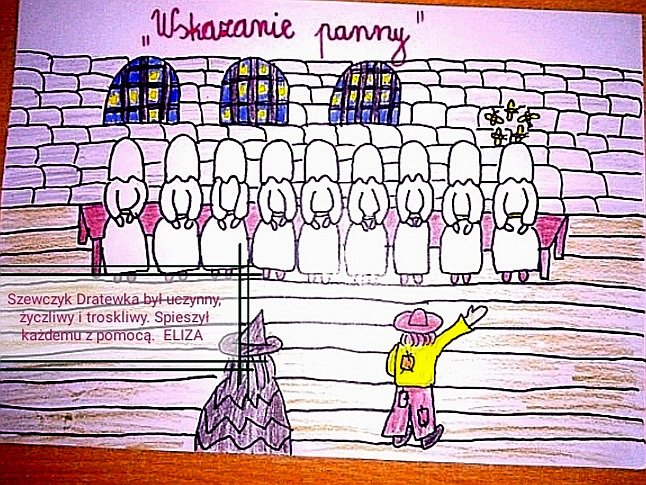 „Wskazanie panny"
Szewczyk Dratewka był uczynny,
życzliwy i troskliwy. Spieszył
każdemu z pomocą. ELIZA